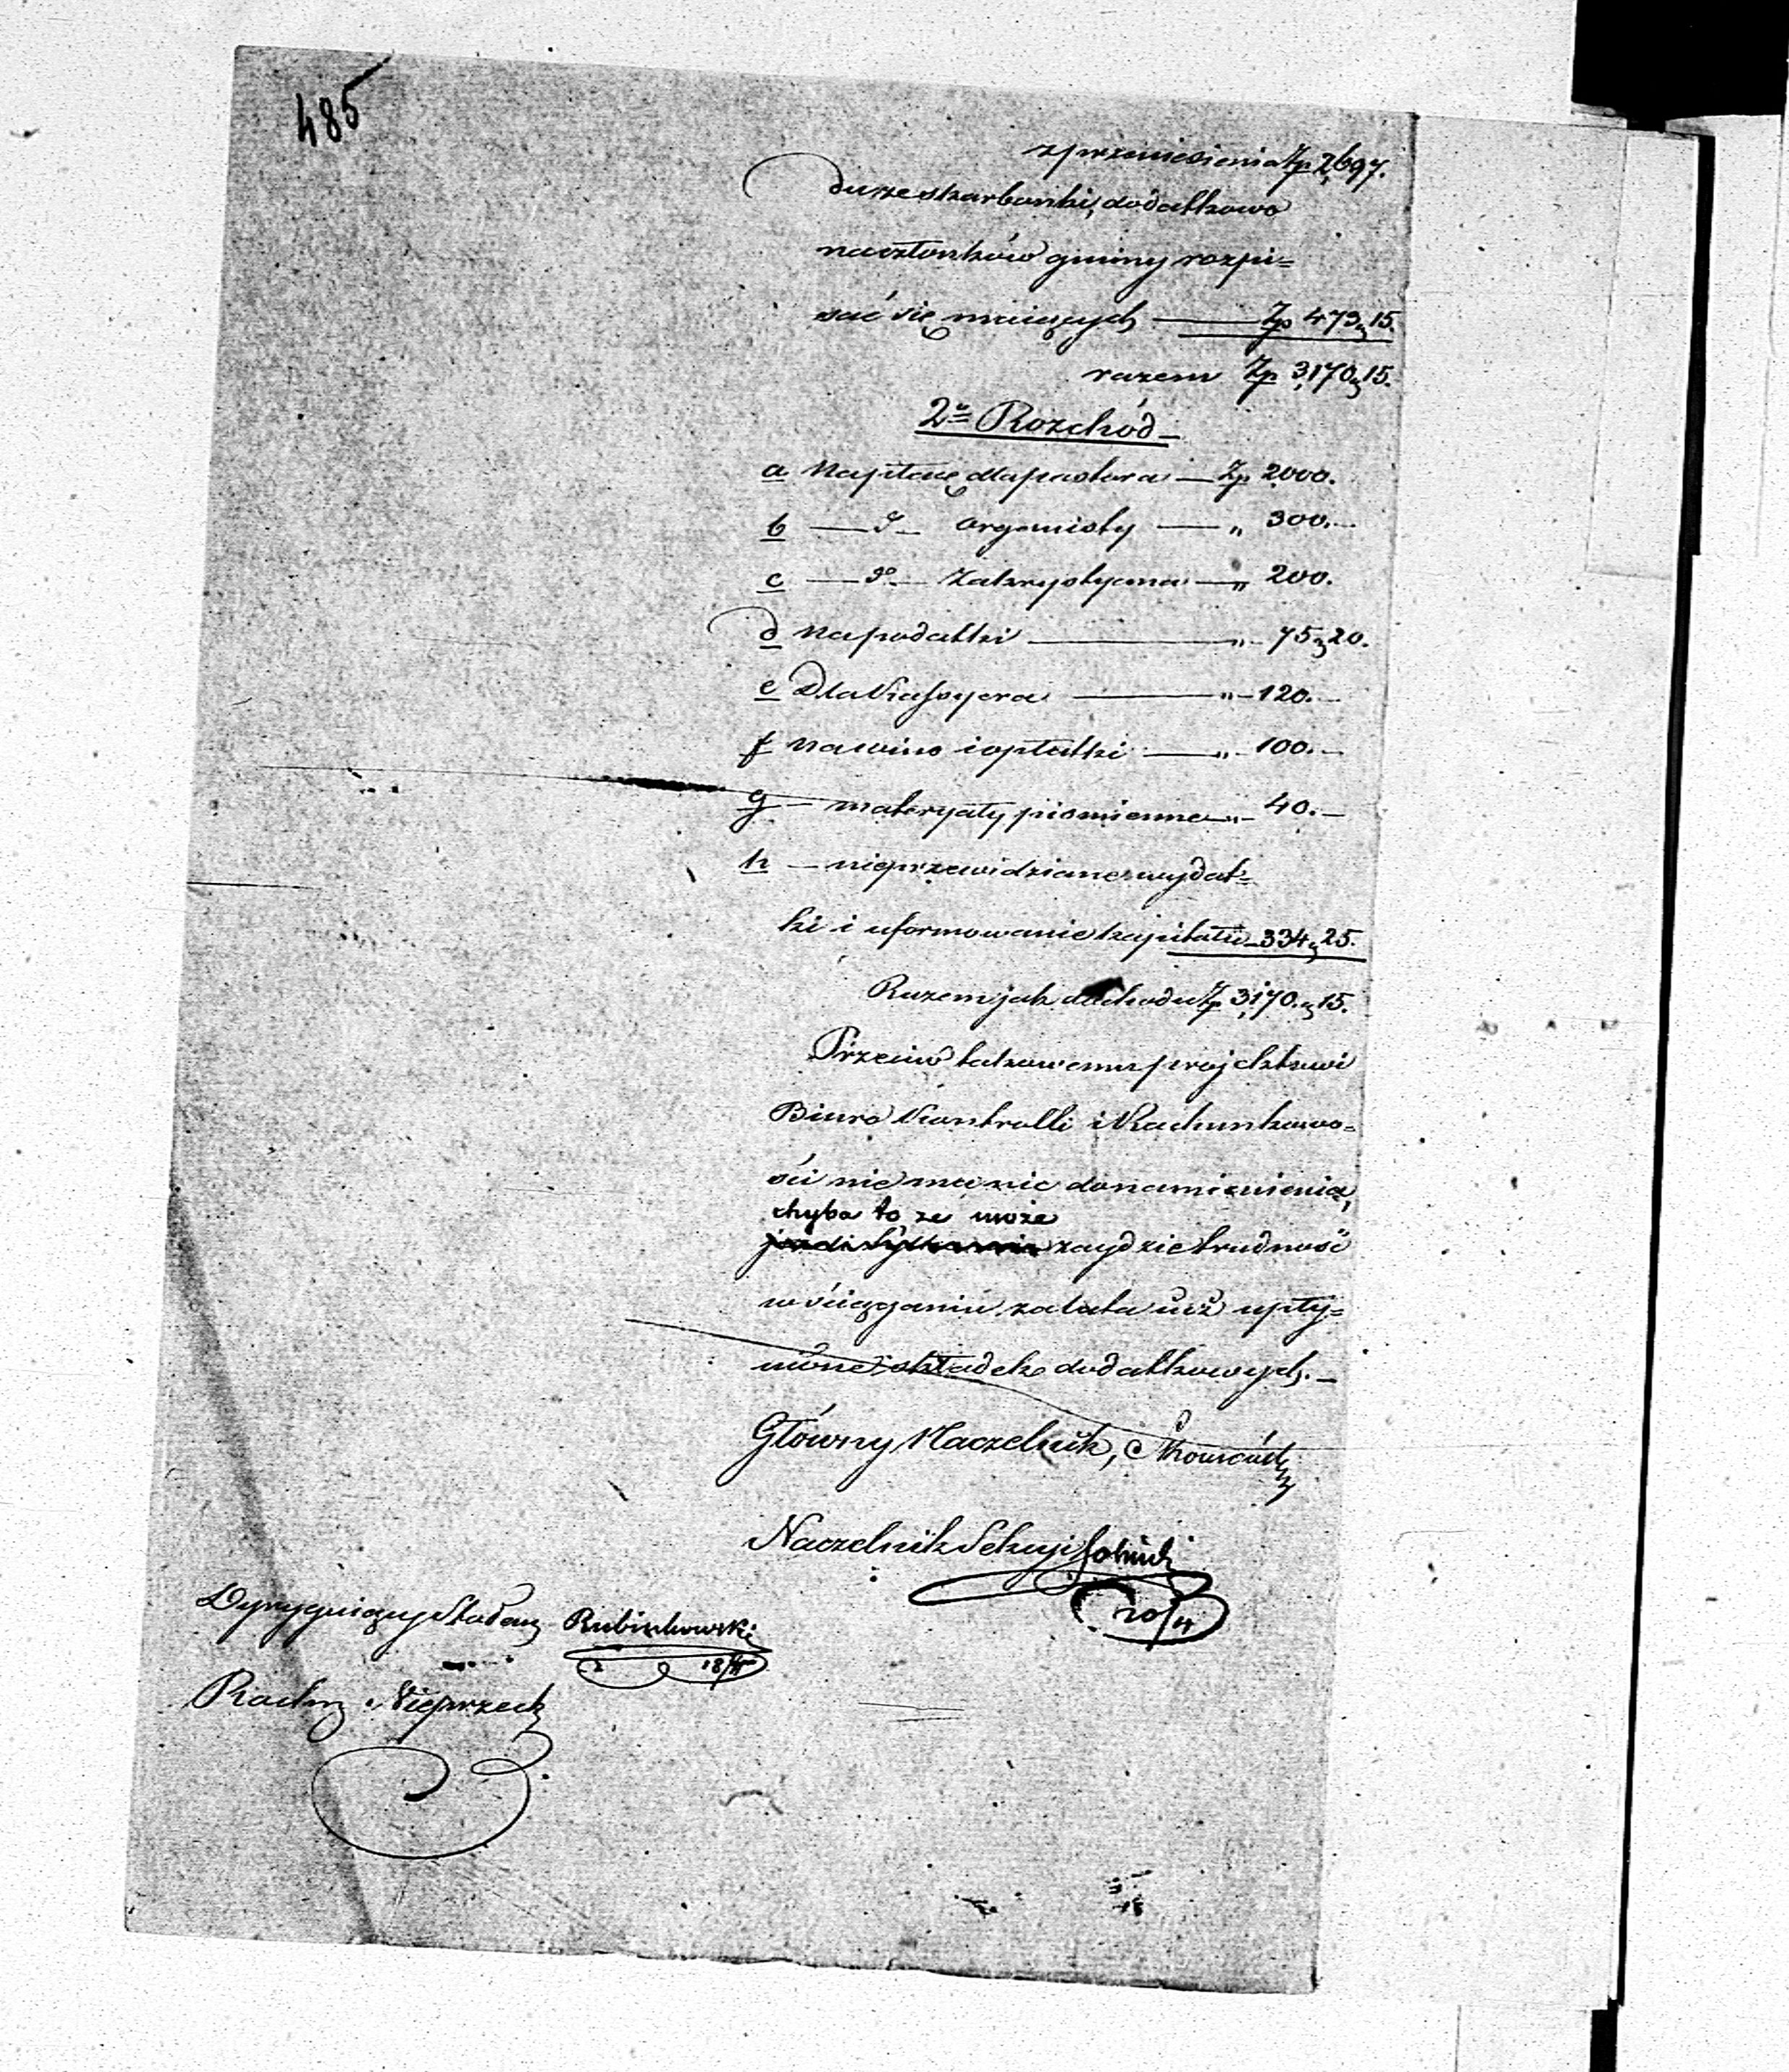 485
z przeniesienia Zp 2,697.
dusze skarbonki, dodatkowo
na członków gminy rozpi=
sać się mających — Zp 473 g 15.
razem Zp 3,170 g 15.
2° Rozchód —
a Na płacę dla pastora — Zp 2000.
b — d° — organisty — „ 300. —
c — d° — Zakrystyana — „ 200.
d Na podatki — „ 75 g 20.
e Dla Kassyera — „ — 120. —
f na wino i opłatki — „ — 100. —
g — materyały piśmienne — „ — 40. —
h — nieprzewidziane wydat=
ki i uformowanie kapitału — 334 g 25.
Razem jak dochodu Zp 3,170. g 15.
Przeciw takowemu projektowi
Biuro Kontrolli i Rachunkowo=
ści nie ma nic do namienienia,
chyba to że może
zaydzie trudność
w ściąganiu za lata już upły=
nione składek dodatkowych. —
Główny Naczelnik,
Naczelnik Sekcyi
20/4
Dyrygujący
Rubinkowski
18/4
Rachm